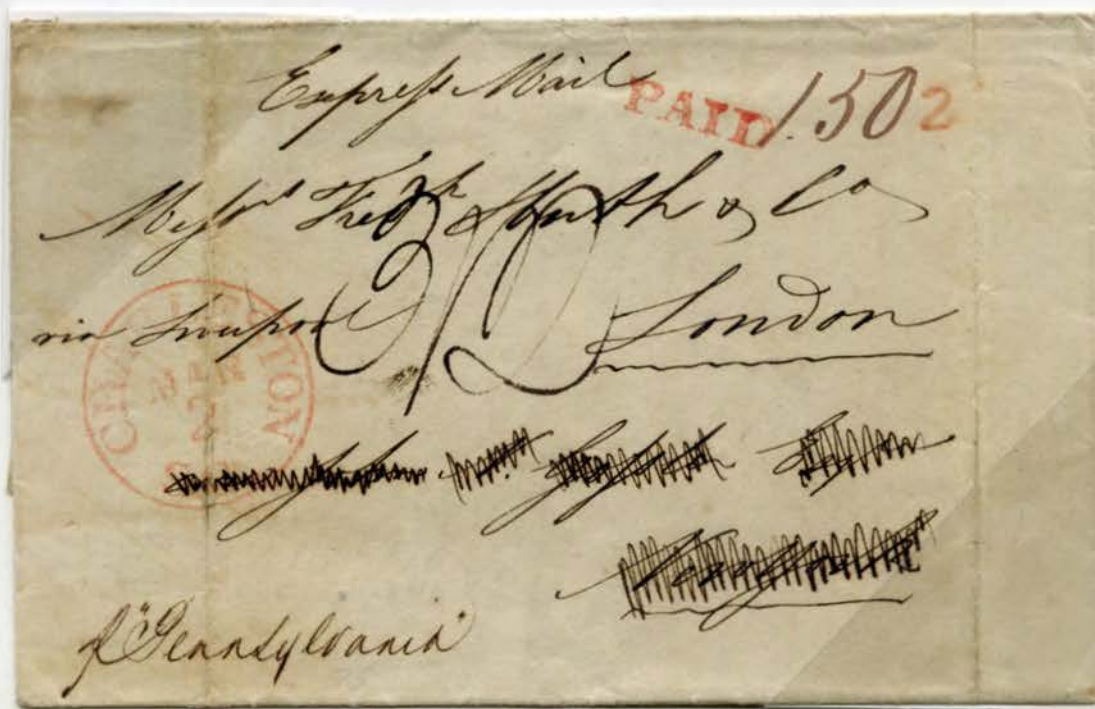 Express Mail
PAID 150 2
Messrs Fredk Huth & Co
via Liverpool London
CHARLESTON
MAR
2
p "Pennsylvania"